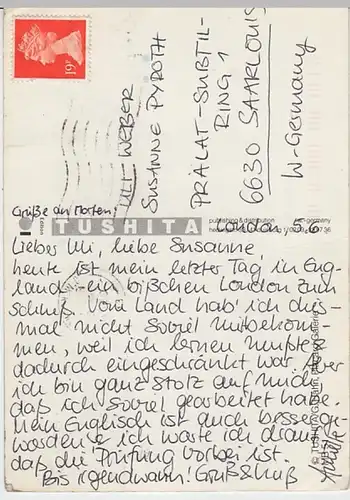 19
ULI WEBER
SUSANNE PYROTH
PRÄLAT-SUBTIL-
RING 1
6630 SAARLOUIS
W-Germany
Grüße an Morten!
TUSHITA
publishing & distribution
London 5.6
Lieber Uli, liebe Susanne,
heute ist mein letzter Tag in Eng-
land - ein bißchen London zum
Schluß. Vom Land hab' ich dies-
mal nicht soviel mitbekom-
men, weil ich lernen mußte &
dadurch eingeschränkt war. Aber
ich bin ganz stolz auf mich
daß ich soviel gearbeitet habe.
Mein Englisch ist auch besser ge-
worden & ich warte ich drauf
daß die Prüfung vorbei ist.
Bis irgendwann! Gruß & Kuß
© TUSHITA